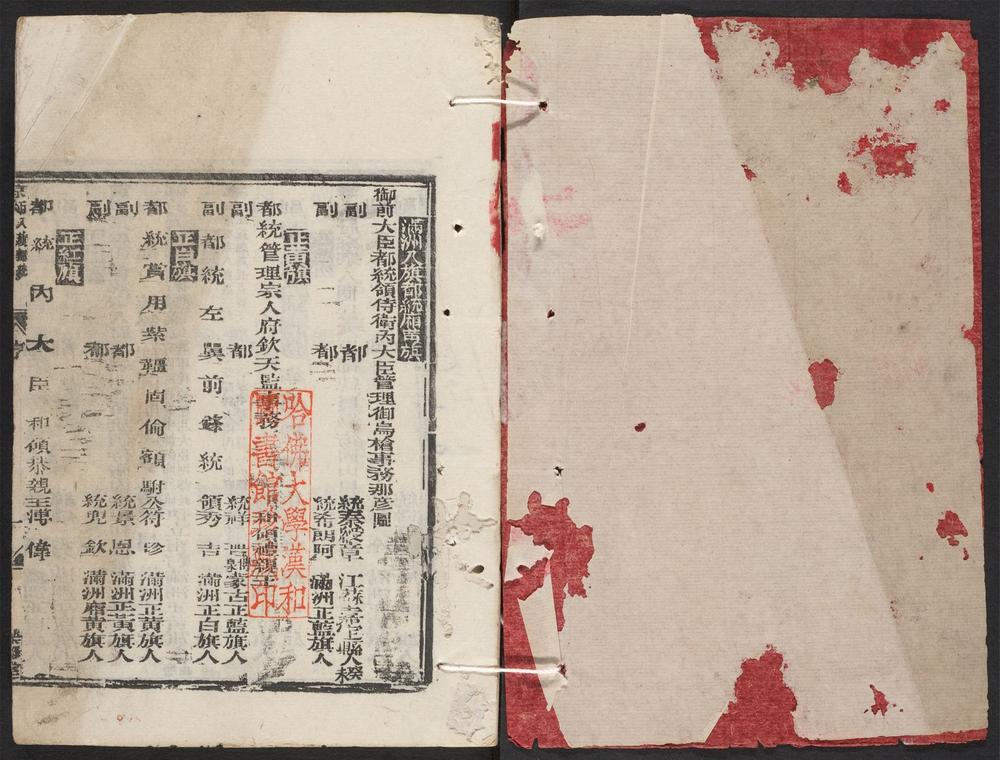 滿洲八旗都統廂黃旗
御前大臣都統領侍衛內大臣管理御鳥槍事務那彥圖
副 都 統秦綬章 江蘇嘉定縣人
副 都 統希朗阿 滿洲正藍旗人
正黃旗
都統管理宗人府欽天監事務 和碩禮親王
副 都 統祥 蒙古正藍旗人
副都統左翼前鋒統領秀吉 滿洲正白旗人
正白旗
都統賞用紫韁固倫額駙公符珍 滿洲正黃旗人
副 都 統景恩 滿洲正黃旗人
副 都 統兜欽 滿洲廂黃旗人
正紅旗
都統 內大臣 和碩恭親王溥偉
京師八旗都統
哈佛大學漢和
書館珍 印